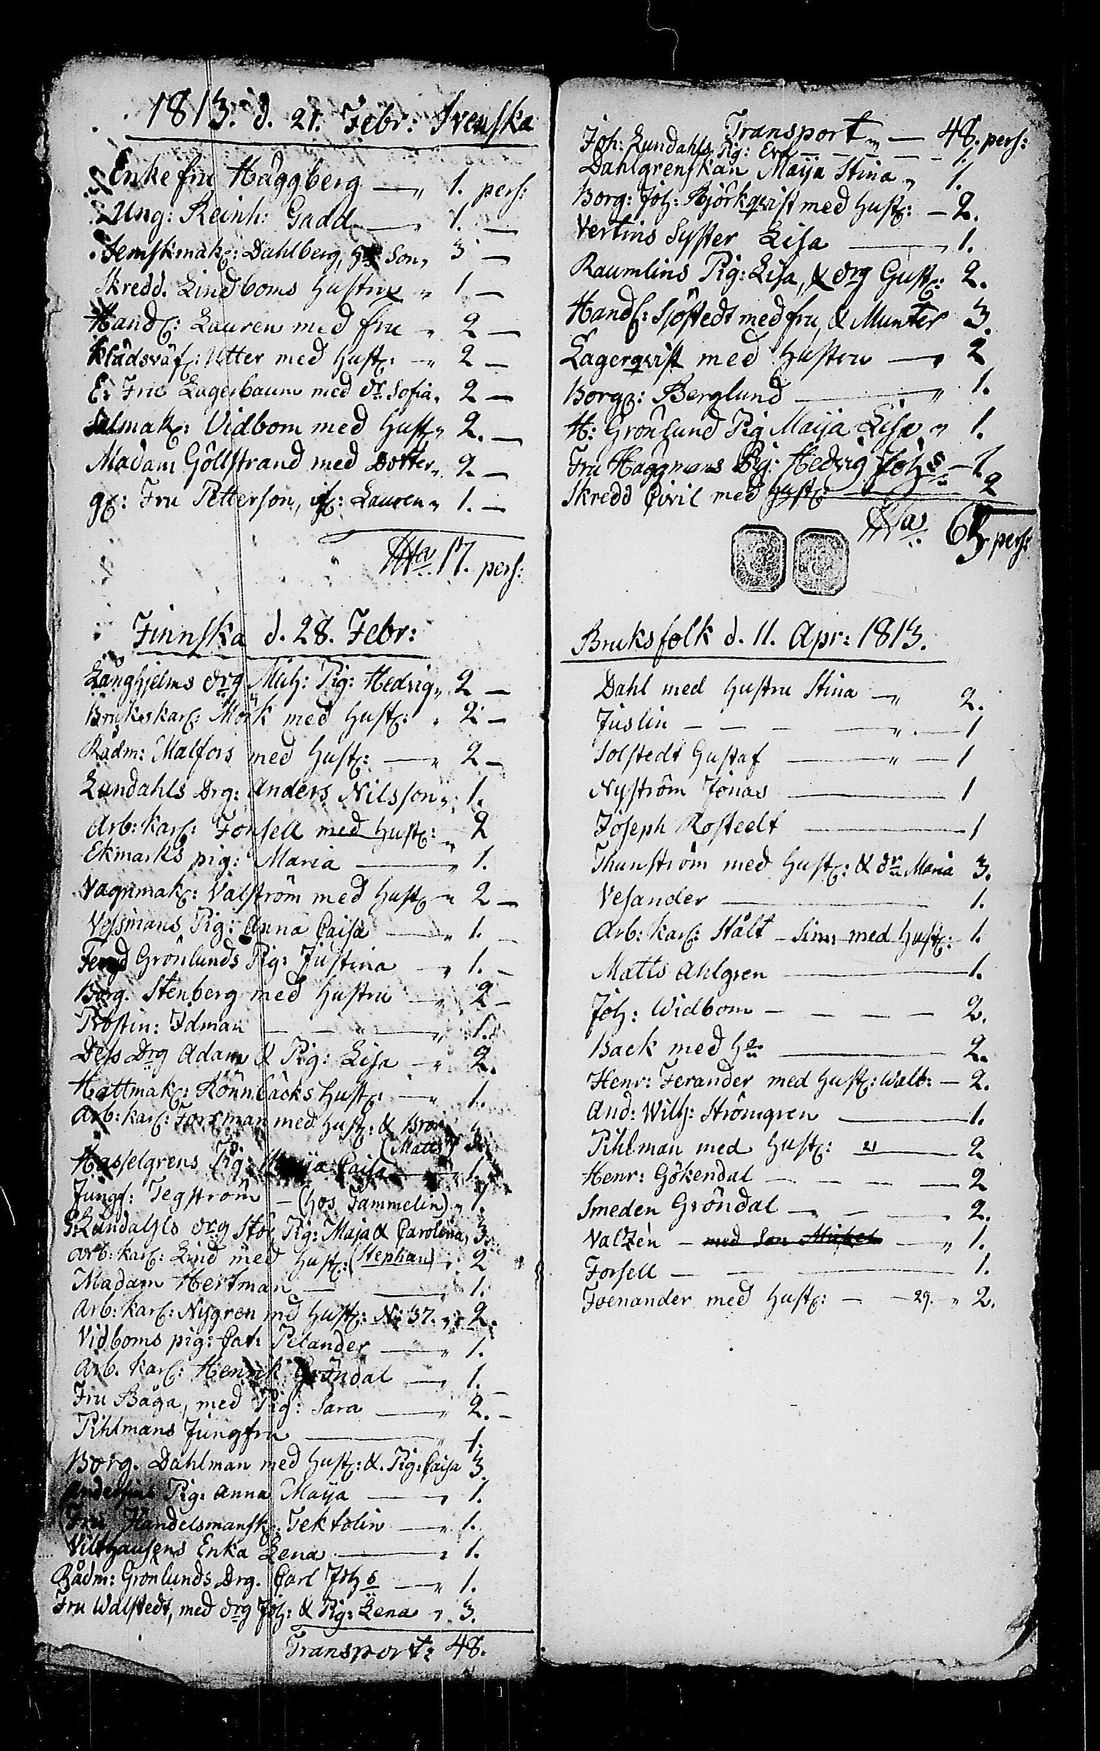 1813. d. 21. Febr: Svenska
Enkefru Häggberg — „ 1. pers:
Ung: Reinh: Gadd — „ 1. —
Semskmak: Dahlberg, Son, 3 —
Skredd. Lindboms Hustru „ 1 —
Handl: Lauren med fru „ 2 —
Klädsväf: Utter med Hust: „ 2 —
E: Fru Lagerbaum med dr. Sofia, 2 —
Salmak: Vidbom med Hust „ 2. —
Madam Göllstrand med Dotter „ 2 —
gl: Fru Petterson, Lauren „ 1. —
S:ma 17. pers:
Finnska d. 28. Febr:
Långhjelms drg Mich: Pig: Hedvig „ 2 —
Brukskarl: Mörk med Hust: „ 2 —
Rådm: Malfors med Hust: — „ 2 —
Lundahls Drg: Anders Nilsson „ 1.
Arb: karl: Fonsell med Hust: „ 2
Ekmarks pig: Maria — „ 1.
Vagnmak: Valström med Hust „ 2 —
Vissmans Pig: Anna Caisa — „ 1. —
Grönlunds Pig: Justina — „ 1. —
Borg. Stenberg med Hustru — „ 2 —
Prostin: Idman — — „ 1.
Dess Drg Adam & Pig: Lisa — „ 2.
Hattmak: Rönnbäcks Hust: — „ 1.
Arb: karl: Forsman med Hust: & Bror
(Matts) 3.
Hasselgrens Pig: Maija Caisa — 1.
Jungf: Tegström — (hos Tammelin) „ 1.
Lundahls drg Stor Pig: Maja & Carolina, 3.
Arb: karl: Lind med Hust: (Stephan) „ 2
Madam Hertman — — 1.
Arb: karl: Nygren med Hust: No: 37. „ 2.
Vidboms pig: Cat: Pelander — „ 1.
Arb. karl: Henrik Gröndal — „ 1. —
Fru Båga, med Pig: Sara — „ 2. —
Pihlmans Jungfru — „ 1.
Borg. Dahlman med Hust: & Pig: Caisa 3
Pig: Anna Maija — „ 1.
Fru Handelsmansk: Tektolin — „ 1.
Vilthausens Enka Lena — „ 1.
Rådm: Grönlunds Drg. Carl Johs — „ 1.
Fru Walstedt, med drg Joh: & Pig: Lena „ 3.
Transport: 48.
Transport „ — 48. pers:
Joh: Lundahls Pig: Eva — — —
Dahlgrenskan Maija Stina „ 1.
Borg: Joh: Björkqvist med Hust: — 2.
Vertins Syster Lisa — „ 1.
Raumlins Pig: Lisa, & drg Gust: 2.
Handl: Sjöstedt med fru, & Munter 3.
Lagerqvist med Hustru — „ 2
Borg: Berglund — „ 1.
H: Grönlund Pig Maija Lisa „ 1.
Fru Häggmans Pig: Hedvig Johs — 1
Skredd Civil med Hust: — 2
S:ma 65 pers:
Bruksfolk d. 11. Apr: 1813.
Dahl med Hustru Stina — „ 2.
Juslin — — — „ — 1
Solstedt Gustaf — „ — 1
Nyström Jonas — 1
Joseph Rosteelt — 1
Thunström med Hust: & dr Maria 3.
Vesander — 1.
Arb: karl: Stålt — Sim: med Hust: — 1.
Matts Ahlgren — 1.
Joh: Widbom — — — — 2.
Back med H — 2.
Henr: Ferander med Hust: Walb: — 2.
And: Wilh: Strömgren — 1.
Pihlman med Hust: 21 — 2
Henr: Gökendal — — — — 2
Smeden Gröndal — „ — — „ 2.
Valzén — med Son Mickel — „ 1.
Forsell — — — 1.
Foenander med Hust: — — 29. „ 2.